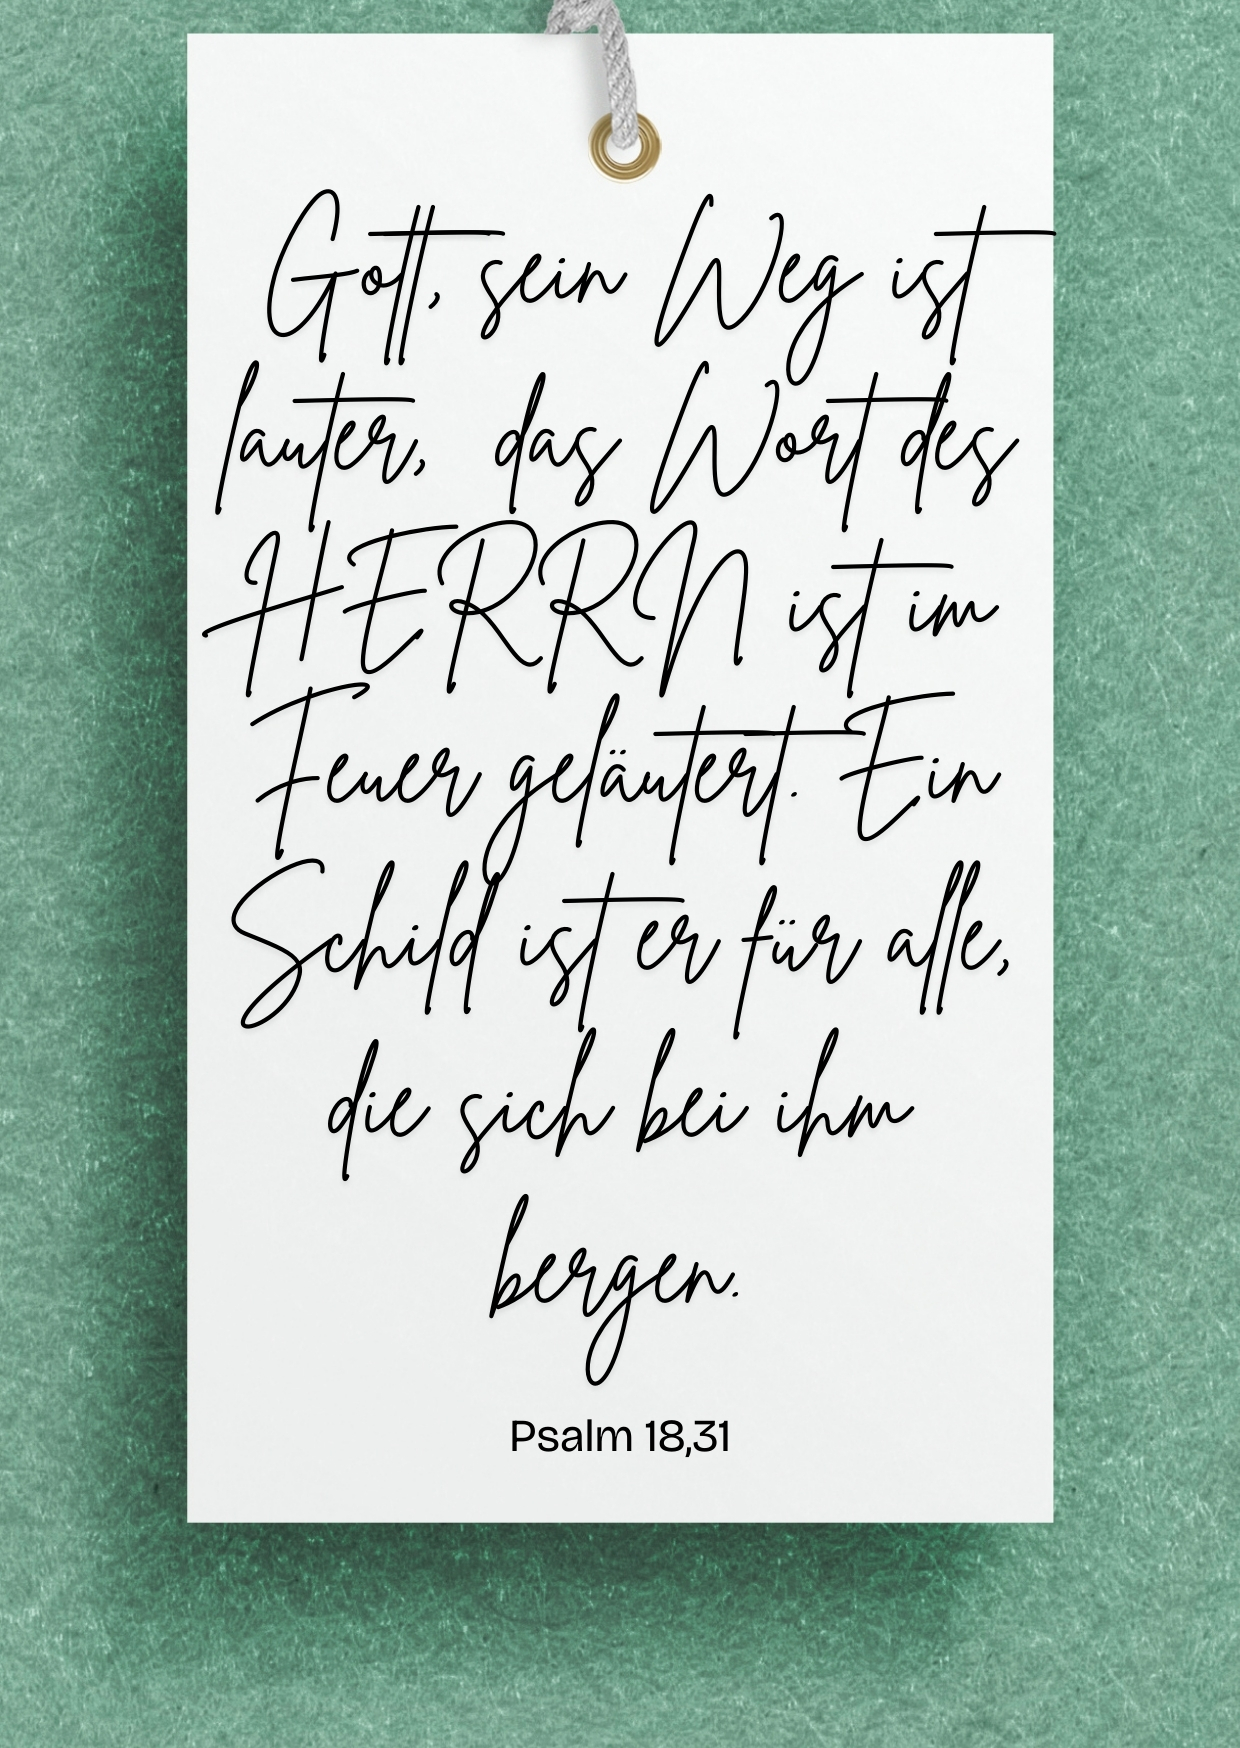 Gott, sein Weg ist
lauter, das Wort des
HERRN ist im
Feuer geläutert. Ein
Schild ist er für alle,
die sich bei ihm
bergen.
Psalm 18,31